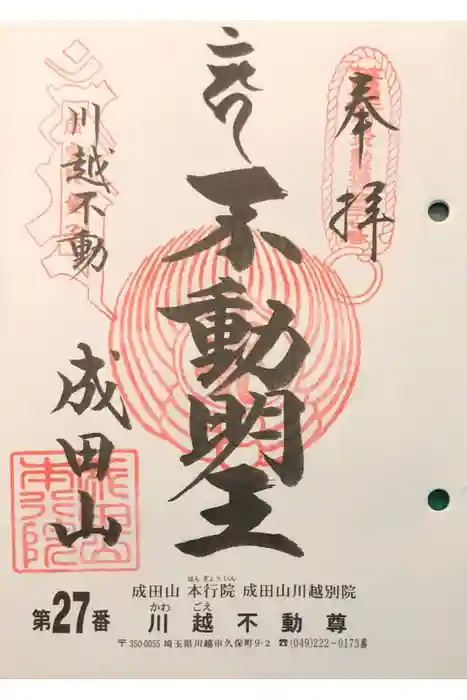 奉拝
不動明王
川越不動
成田山
成田山 本行院 成田山川越別院
ほんぎょういん
第27番
川越不動尊
かわごえ
〒350-0055 埼玉県川越市久保町9-2 ☎(049)222-0173番